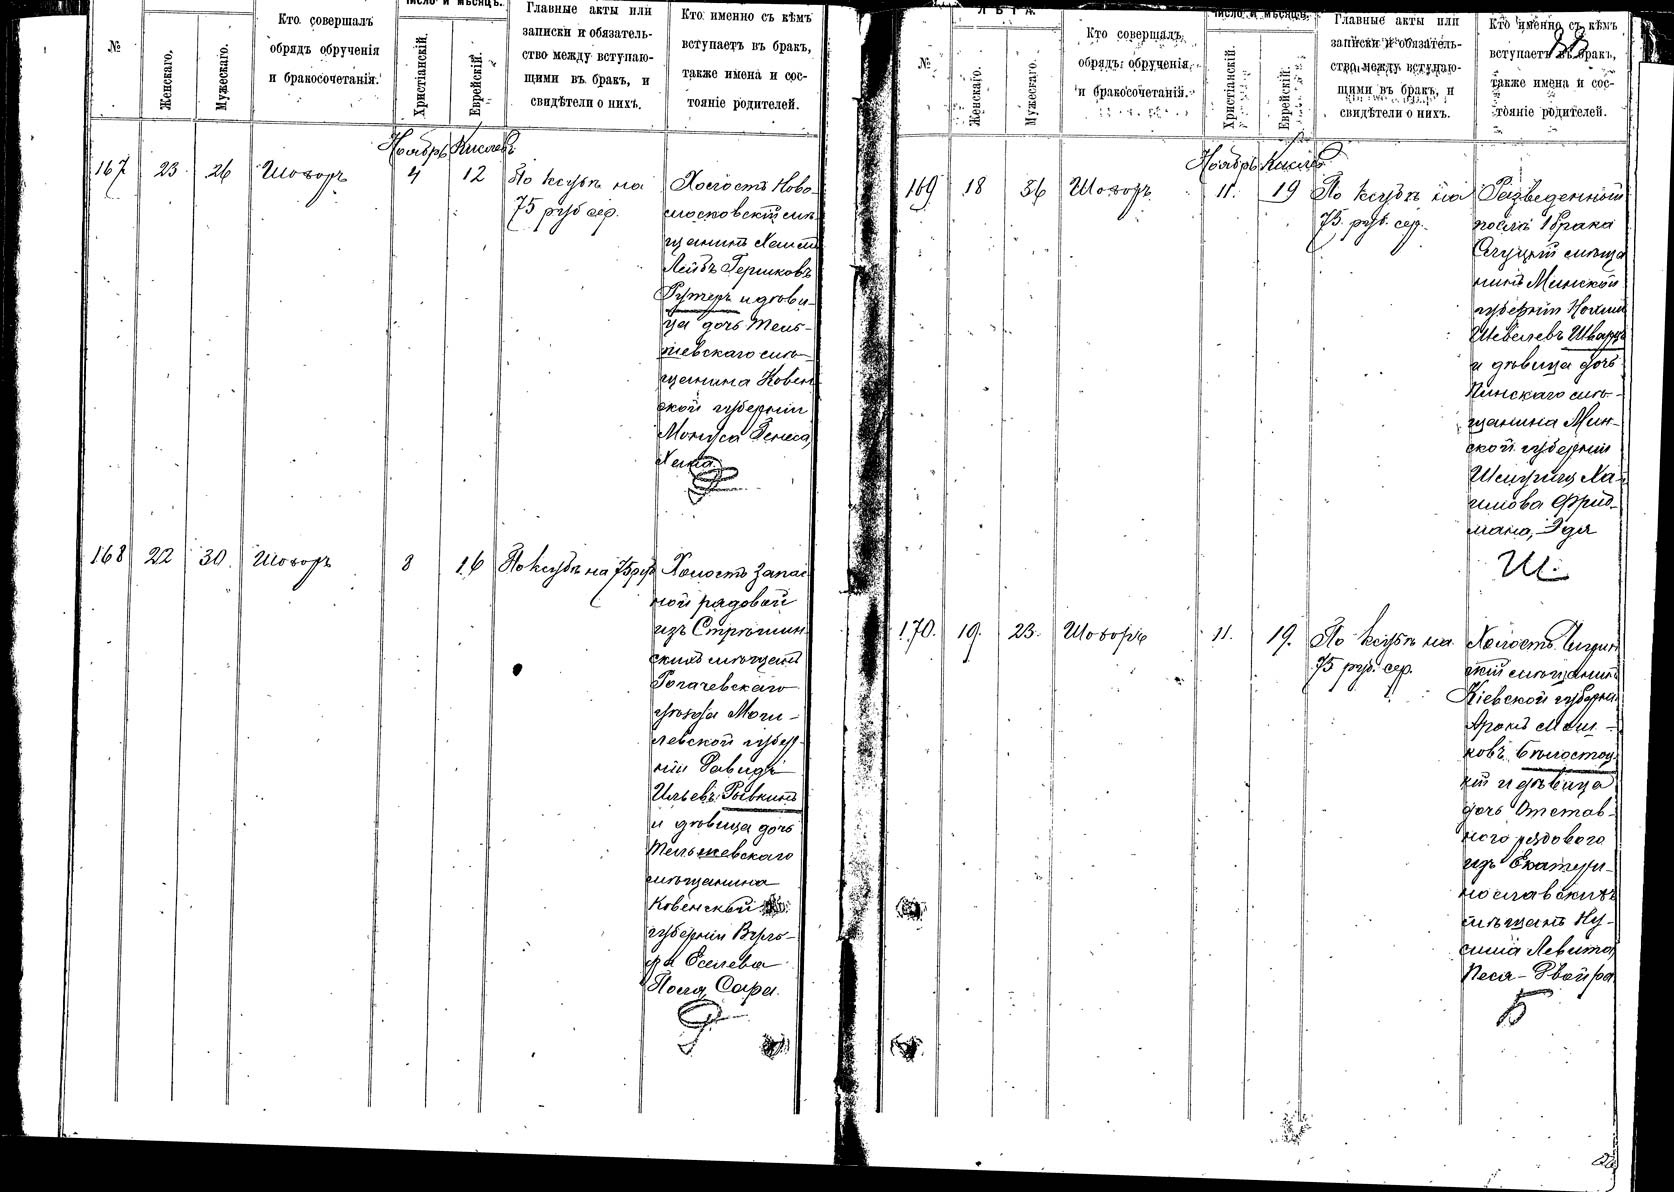 Число и мѣсяцъ.
№
Женскаго.
Мужескаго.
Кто совершалъ
обрядъ обрученія
и бракосочетанія.
Христіанскій.
Еврейскій.
Главные акты или
записки и обязатель-
ство между вступаю-
щими въ бракъ, и
свидѣтели о нихъ.
Кто именно съ кѣмъ
вступаетъ въ бракъ,
также имена и сос-
тояніе родителей.
Ноябрь Кислевъ
167 23 26 4 12
По ксубѣ на
75 руб сер.
Холостъ Ново-
московскій мѣ-
щанинъ
Лейбъ Гершковъ
и дѣви-
ца дочь Тель-
шевскаго мѣ-
щанина Ковен-
ской губерніи
168 22 30 8 16
По ксубѣ на 75 руб
Холостъ запас-
ной рядовой
изъ
скихъ мѣщанъ
Рогачевскаго
уѣзда Моги-
левской губер-
ніи
Ильевъ Рывкинъ
и дѣвица дочь
Тельшевскаго
мѣщанина
Ковенской
губерніи
Сара.
Р
ЛѢТА
Число и мѣсяцъ.
88
№
Женскаго.
Мужескаго.
Кто совершалъ
обрядъ обрученія
и бракосочетанія.
Христіанскій.
Еврейскій.
Главные акты или
записки и обязатель-
ство между вступаю-
щими въ бракъ, и
свидѣтели о нихъ.
Кто именно съ кѣмъ
вступаетъ въ бракъ,
также имена и сос-
тояніе родителей.
Ноябрь Кислевъ
169 18 36 11. 19
По ксубѣ на
75 руб. сер.
Разведенный
послѣ 1 брака
Слуцкій мѣща
нинъ Минской
губерніи
Шевелевъ Шварцъ
и дѣвица дочь
Пинскаго мѣ-
щанина Мин-
ской губерніи
Ха-
имова Фрид-
мана, Эдя
Ш.
170. 19. 23. 11. 19.
По ксубѣ на
75 руб. сер.
Холостъ Чигрин
скій мѣщанинъ
Кіевской губерніи
Аронъ
ковъ Бѣлостоц
кій и дѣвица
дочь Отстав-
ного рядового
изъ Екатери-
нославскихъ
мѣщанъ Ну-
Левита,
Песя-Двойра
Б